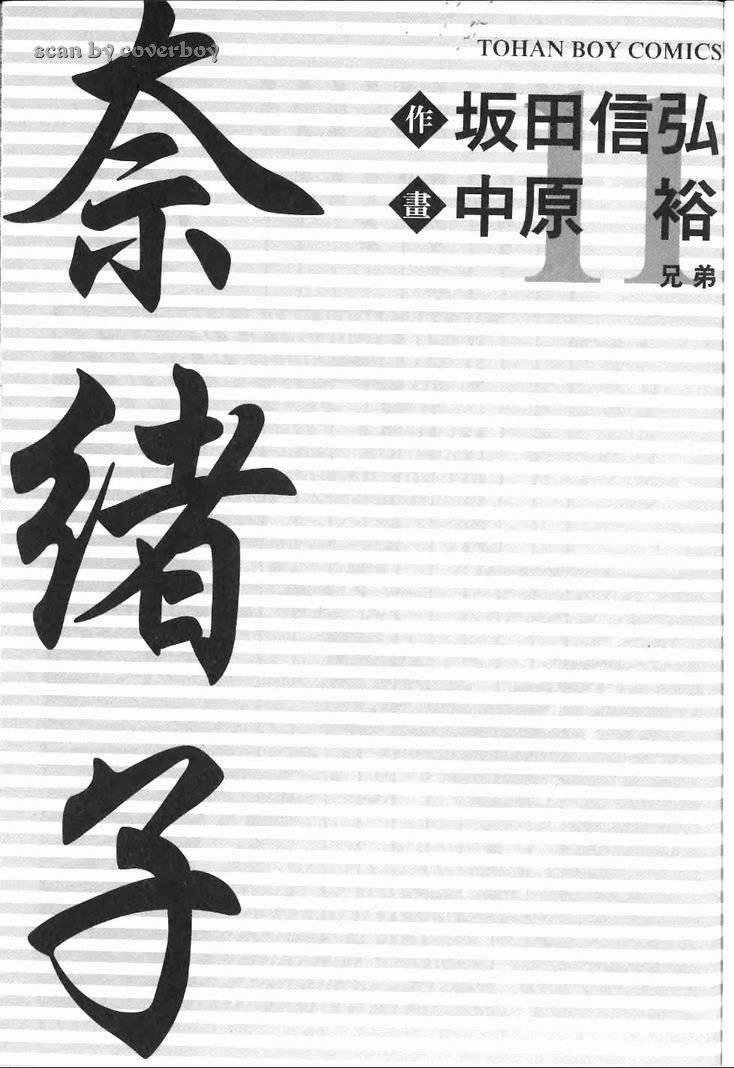 scan by coverboy
TOHAN BOY COMICS
11
作 坂田信弘
畫 中原 裕
兄弟
奈緒子